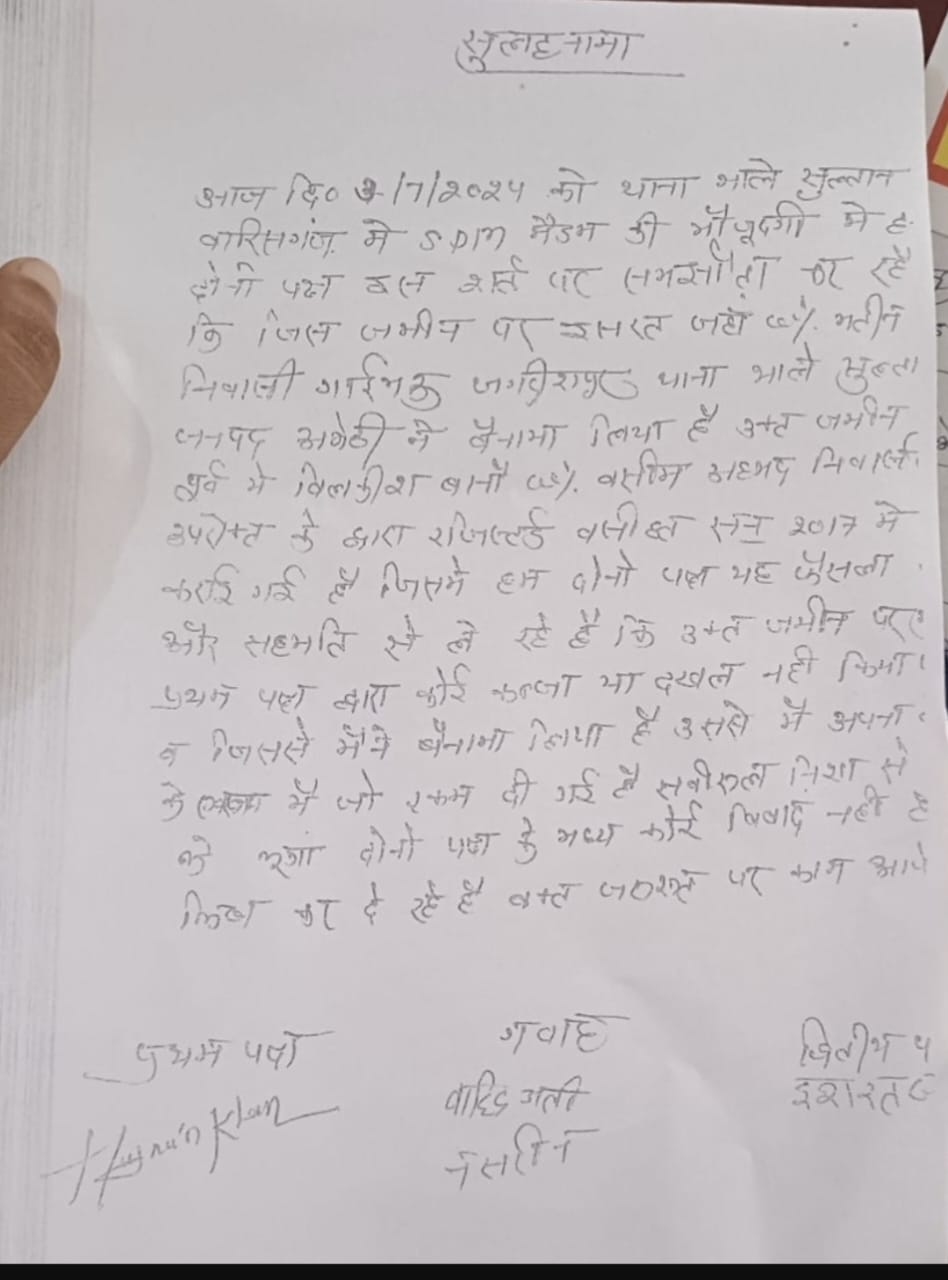 सुलहनामा
आज दि० /7/2024 को थाना भाले सुल्तान
वारिसगंज में SDM मैडम की मौजूदगी मे ह
दोनो पक्ष इस शर्त पर समझौता कर रहे
कि जिस जमीन पर इसरत जहाँ w/o मतीन
निवासी थाना भाले सुल्ता
जनपद अमेठी ने बैनामा लिया है उक्त जमीन
पूर्व मे विलकीश बानो w/o वसीम अहमद निवासी
उपरोक्त के द्वारा रजिस्टर्ड वसीयत सन 2017 मे
कराई गई है जिसमे हम दोनो पक्ष यह फैसला
और सहमति से ले रहे है कि उक्त जमीन पर
प्रथम पक्ष द्वारा कोई कब्जा या दखल नही किया
व जिससे मैने बैनामा लिया है उससे मै अपना
के मै जो रकम दी गई है निशा से
ले लूगा दोनो पक्ष के मध्य कोई विवाद नही है
लिख कर दे रहे है वक्त जरूरत पर काम आये
प्रथम पक्ष
गवाह
द्वितीय प
Khan
वाहिद अली
इशरत ज
नसरीन